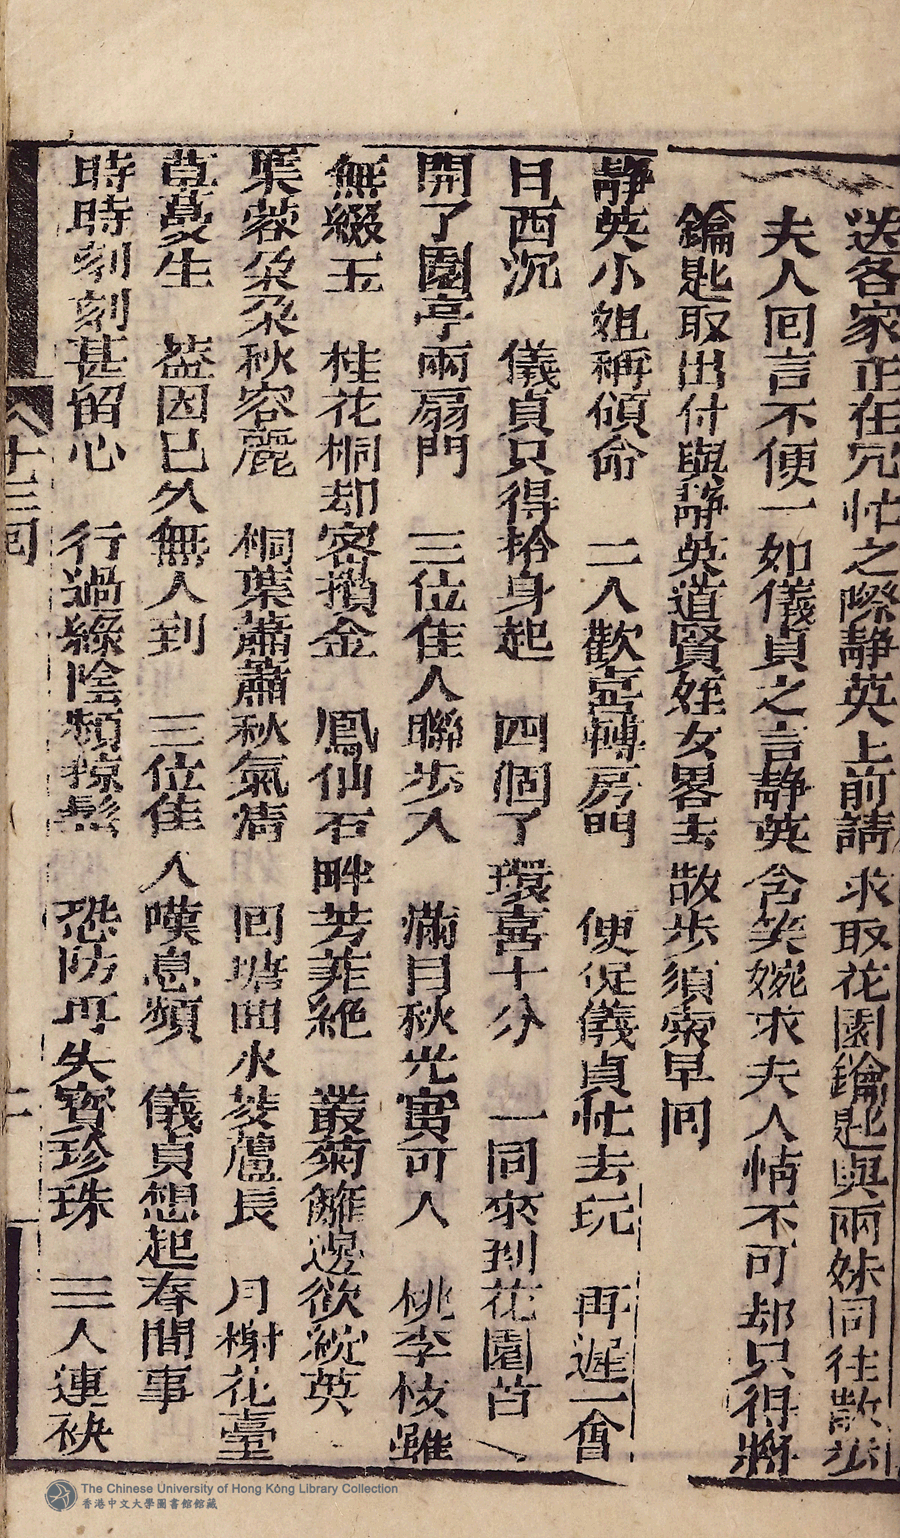 送各家正在冗忙之際静英上前請求取花園鑰匙與兩妹同往散步
夫人回言不便一如儀貞之言静英含笑婉求夫人情不可却只得將
鑰匙取出付與静英道賢姪女畧去散步須索早回
静英小姐稱傾命 二人歡喜轉房門 便促儀貞忙去玩 再遲一會
日西沉 儀貞只得抬身起 四個了環喜十分 一同來到花園首
開了園亭兩扇門 三位佳人聯步入 滿目秋光實可人 桃李枝雖
無綴玉 桂花桐却密攅金 鳳仙石畔芳菲絶 叢菊籬邊欲綻英
葉蓉朶朶秋容麗 桐葉蕭蕭秋氣清 回塘曲水芰蘆長 月榭花臺
草蔓生 葢因已久無人到 三位佳人嘆息頻 儀貞想起春間事
時時刻刻甚留心 行過綠陰頻掠鬂 恐防再失寳珍珠 三人連袂
十三回
二
The Chinese University of Hong Kong Library Collection
香港中文大學圖書館館藏